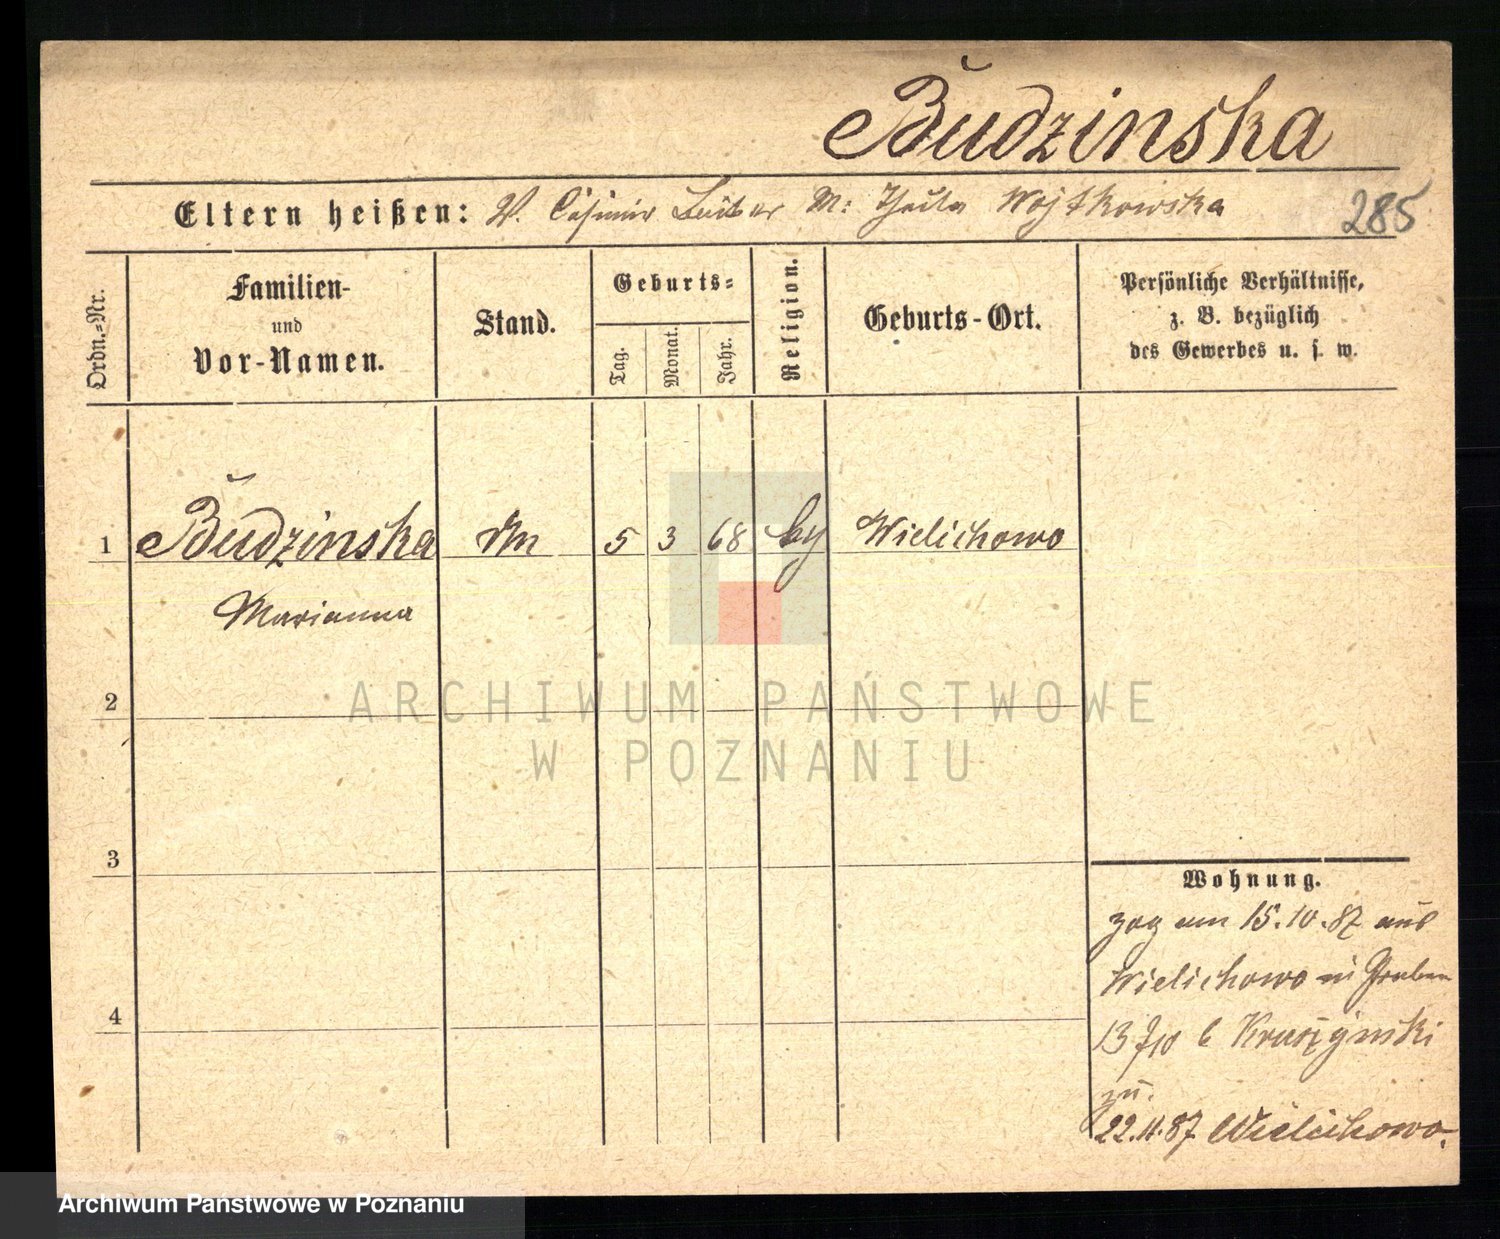 Budzinska
Eltern heißen: V. Casimir M: Thekla Wojtkowska
285
Ordn.-Nr.
Familien-
und
Vor-Namen.
Stand.
Geburts-
Tag.
Monat.
Jahr.
Religion.
Geburts-Ort.
Persönliche Verhältnisse,
z. B. bezüglich
des Gewerbes u. s. w.
1 Budzinska 5 3 68 Wielichowo
Marianna
2
ARCHIWUM PAŃSTWOWE
W POZNANIU
3
Wohnung.
zog am 15.10.87 aus
Wielichowo n Graben
13 b Kruszynski
zu.
22.11.87 Wielichowo.
4
Archiwum Państwowe w Poznaniu